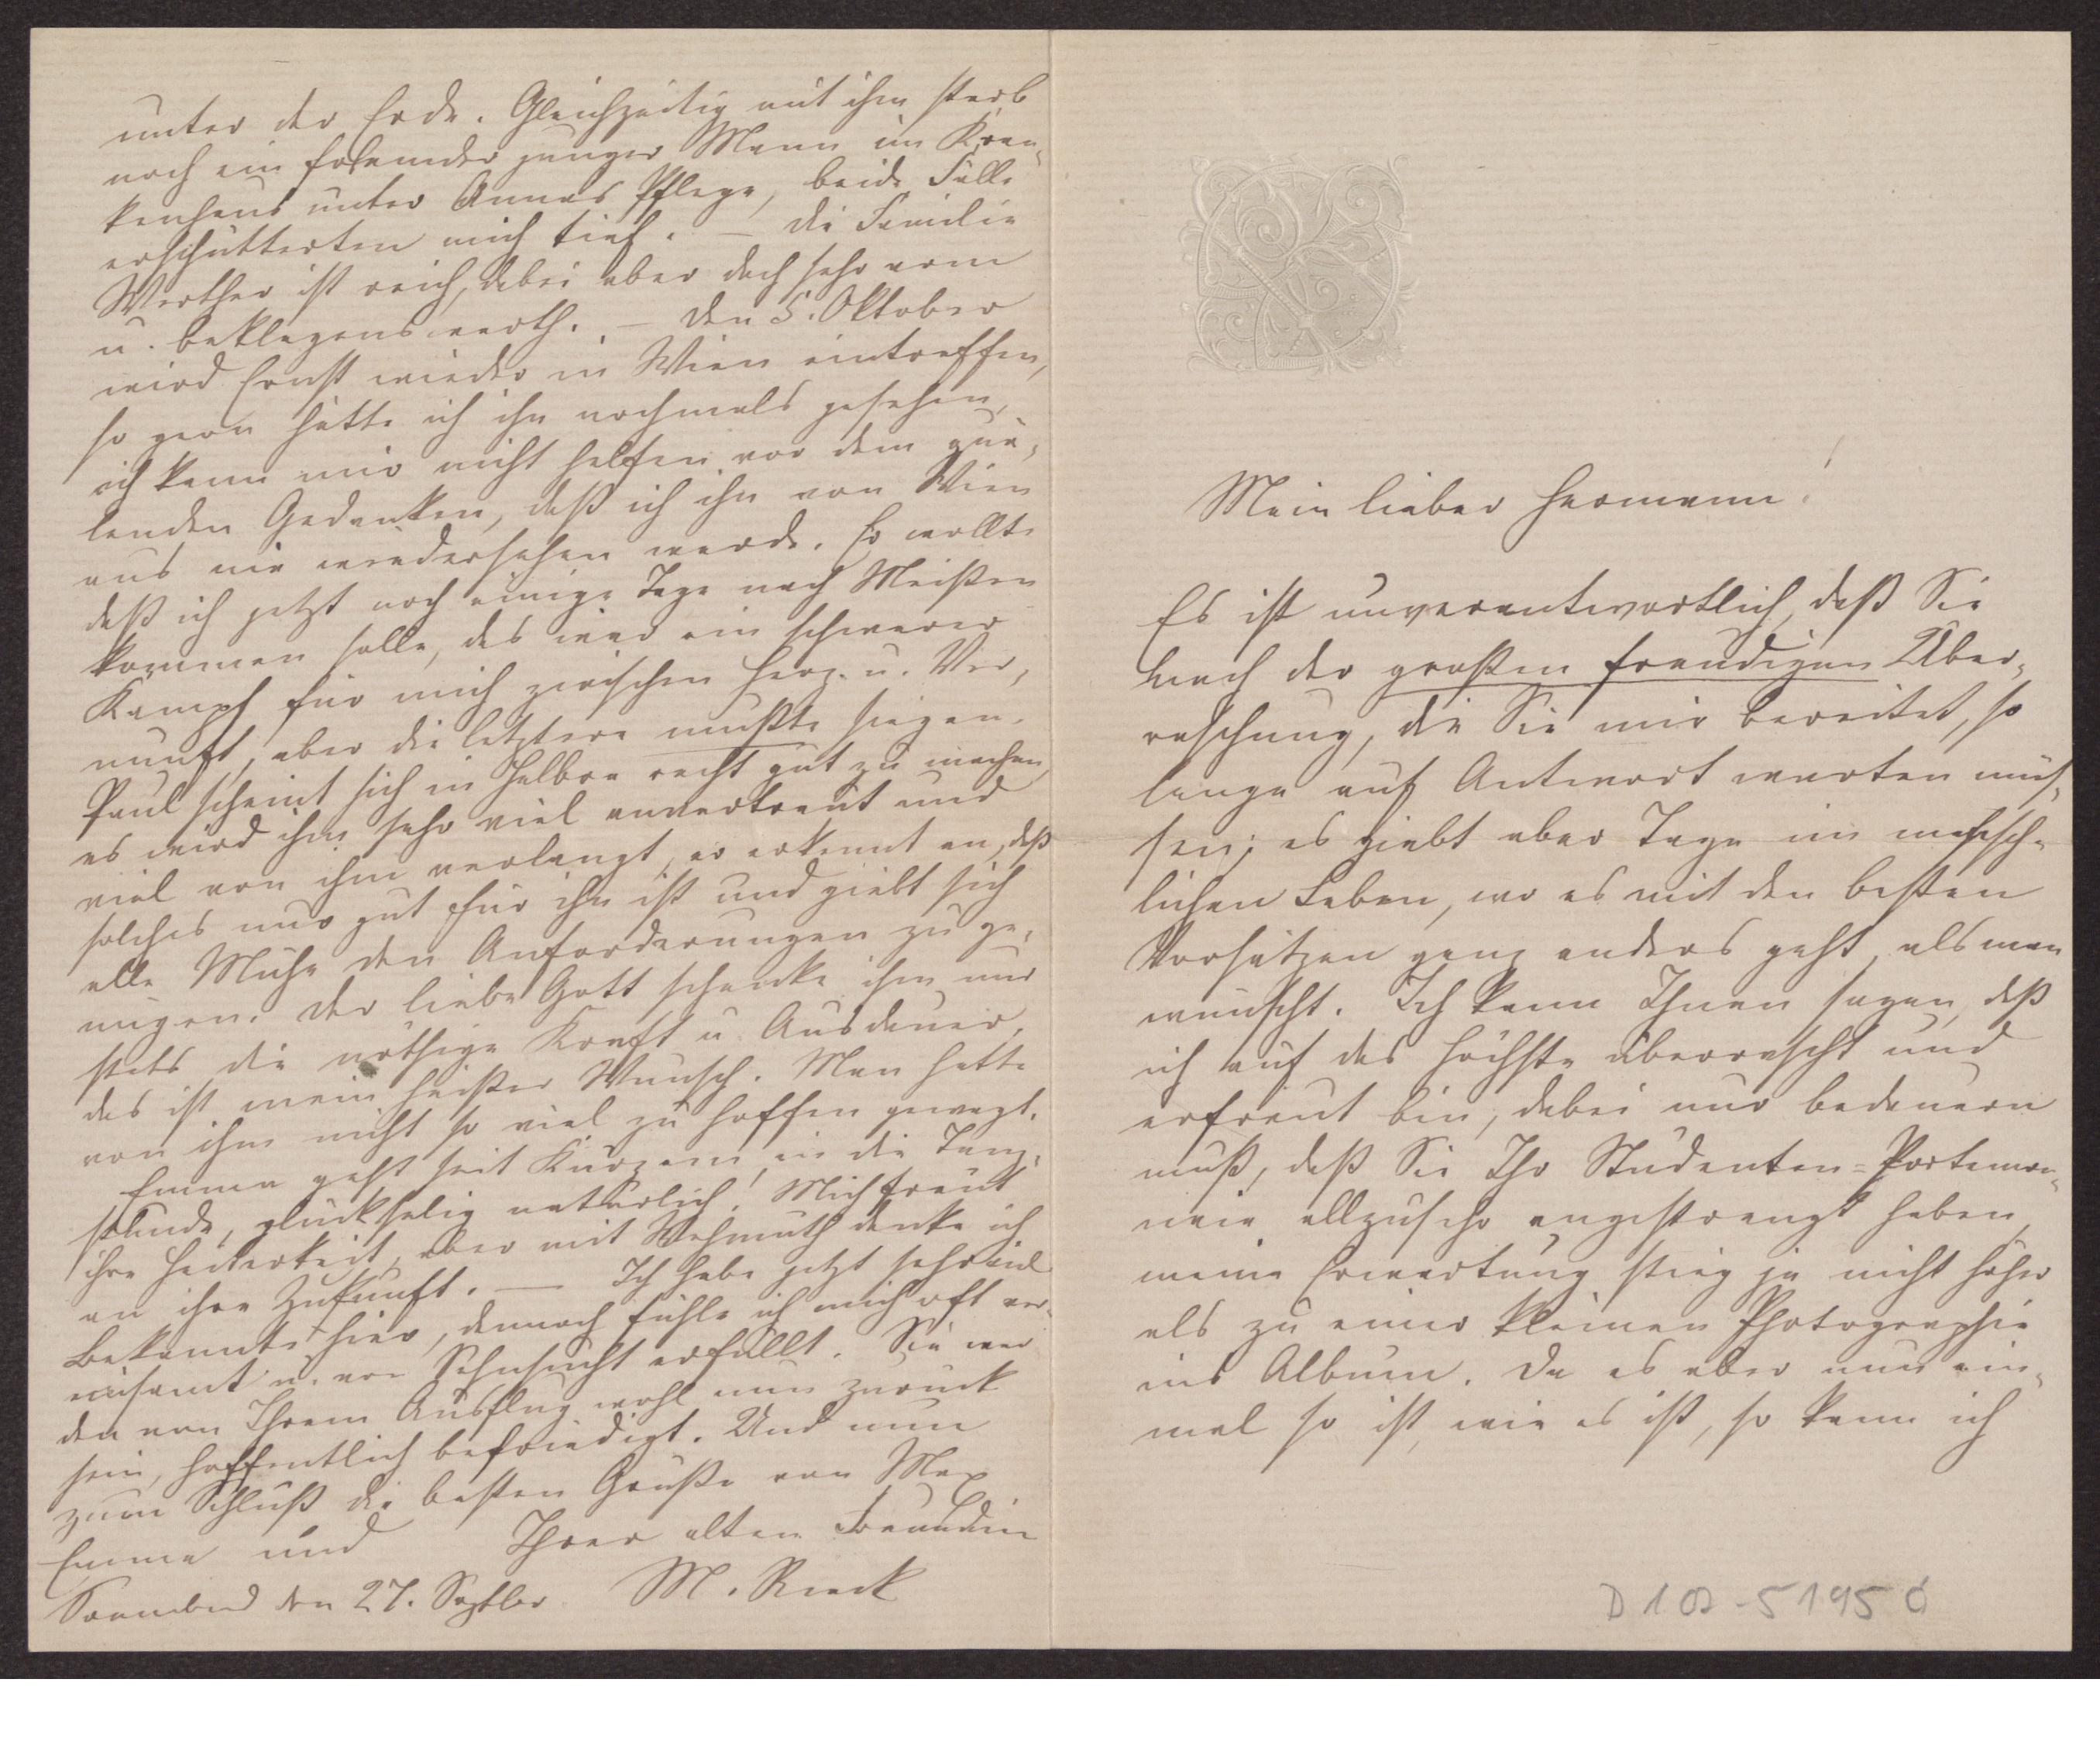 Mein lieber Hermann!
Es ist unverantwortlich, daß Sie
nach der großen freudigen Über-
raschung, die Sie mir bereitet, so
lange auf Antwort warten müs-
sen; es giebt aber Tage im mensch-
lichen Leben, wo es mit den besten
Vorsätzen ganz anders geht als man
wünscht. Ich kann Ihnen sagen, daß
ich auf das höchste überrascht und
erfreut bin, dabei nur bedauern
muß, daß Sie Ihr Studenten-Portemon-
naie allzusehr angestrengt haben,
meine Erwartung stieg ja nicht höher
als zu einer kleinen Photographie
ins Album. Da es aber nun ein-
mal so ist, wie es ist, so kann ich
D 107-5195 d
unter der Erde. Gleichzeitig mit ihm starb
noch ein fremder junger Mann im Kran-
kenhaus unter Annas Pflege, beide Fälle
erschütterten mich tief. – Die Familie
Werther ist reich, dabei aber doch sehr arm
u. beklagenswerth. – Den 5. Oktober
wird Ernst wieder in Wien eintreffen,
so gern hätte ich ihn nochmals gesehen,
ich kann mir nicht helfen vor dem quä-
lenden Gedanken, daß ich ihn von Wien
aus nie wiedersehen werde. Er wollte
daß ich jetzt noch einige Tage nach Meißen
kommen solle, das war ein schwerer
Kampf für mich zwischen Herz u. Ver-
nunft, aber die letztere mußte siegen.
Paul scheint sich in Halbau recht gut zu machen,
es wird ihm sehr viel anvertraut und
viel von ihm verlangt, er erkennt an, daß
solches nur gut für ihn ist und giebt sich
alle Mühe den Anforderungen zu ge-
nügen. Der liebe Gott schenke ihm nur
stets die nöthige Kraft u. Ausdauer,
das ist mein heißer Wunsch. Man hatte
von ihm nicht so viel zu hoffen gewagt.
Emma geht seit Kurzem in die Tanz-
stunde, glückselig natürlich! Mich freut
ihre Heiterkeit, aber mit Wehmuth denke ich
an ihre Zukunft. – Ich habe jetzt sehr viel
Bekannte hier, dennoch fühle ich mich oft ver-
einsamt u. von Sehnsucht erfüllt. Sie wer-
den von Ihrem Ausflug wohl nun zurück
sein, hoffentlich befriedigt. Und nun
zum Schluß die besten Grüße von Max
Emma und Ihrer alten Freundin
Sonnabend den 27. Septbr M. Rieck